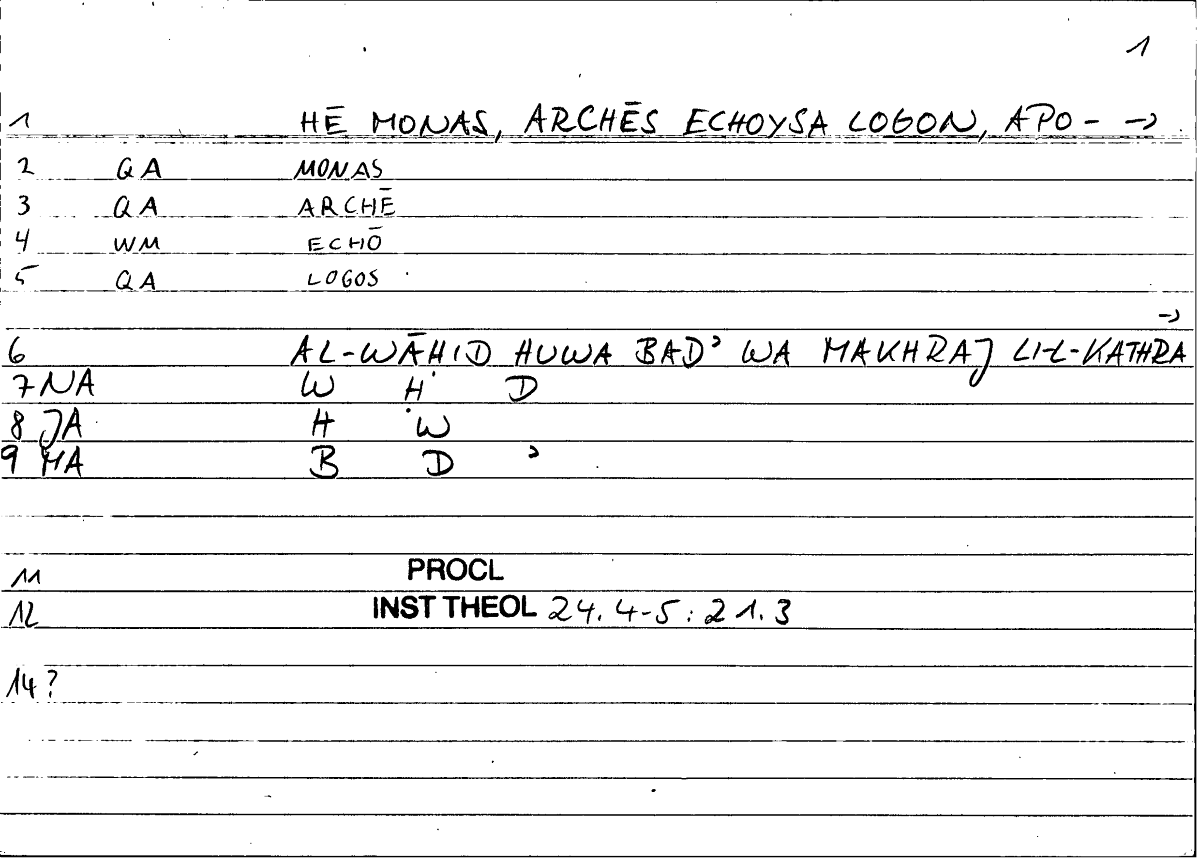 1
1 HĒ MONAS, ARCHĒS ECHOYSA LOGON, APO- →
2 QA MONAS
3 QA ARCHĒ
4 WM ECHŌ
5 QA LOGOS
→
6 AL-WĀḤID HUWA BADʾ WA MAKHRAJ LI-L-KATHRA
7 NA W Ḥ D
8 JA H W
9 MA B D ʾ
11 PROCL
12 INST THEOL 24.4-5:21.3
14?